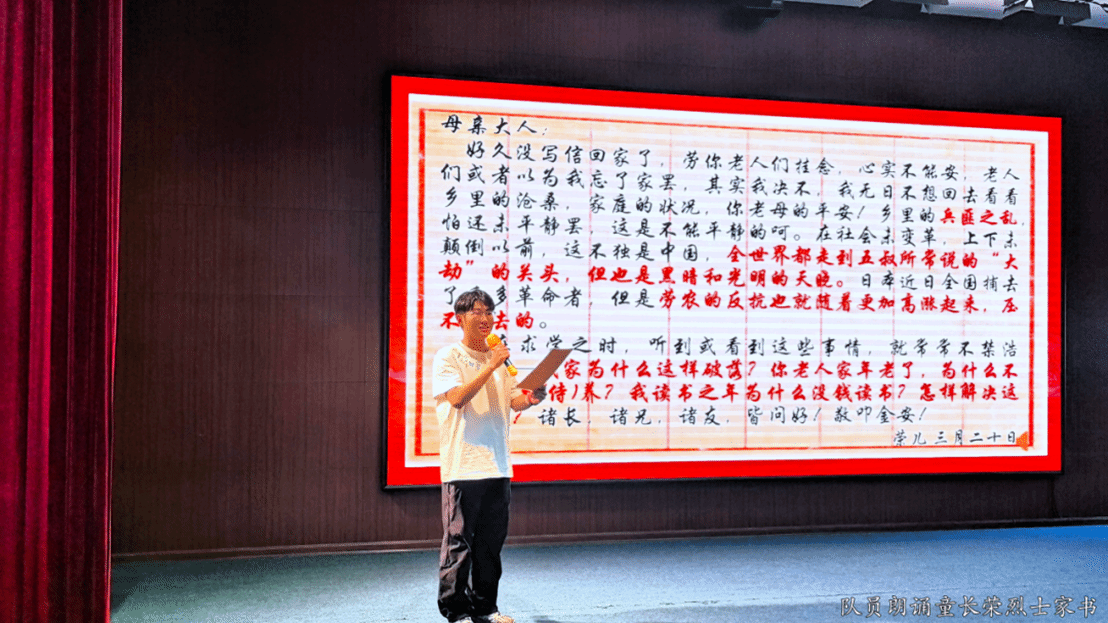 母亲大人:
好久没写信回家了,劳你老人们挂念,心实不能安,老人
们或者以为我忘了家罢,其实我决不,我无日不想回去看看
乡里的沧桑,家庭的状况,你老母的平安!乡里的兵匪之乱,
怕还未平静罢,这是不能平静的呵。在社会未变革,上下未
颠倒以前,这不独是中国,全世界都走到五叔所常说的“大
劫”的关头,但也是黑暗和光明的天晓。日本近日全国捕去
了 多革命者,但是劳农的反抗也就随着更加高涨起来,压
不 去的。
求学之时,听到或看到这些事情,就常常不禁浩
家为什么这样破落?你老人家年老了,为什么不
侍)养?我读书之年为什么没钱读书?怎样解决这
?诸长,诸兄,诸友,皆问好!敬叩金安!
荣儿 三月二十日
队员朗诵童长荣烈士家书